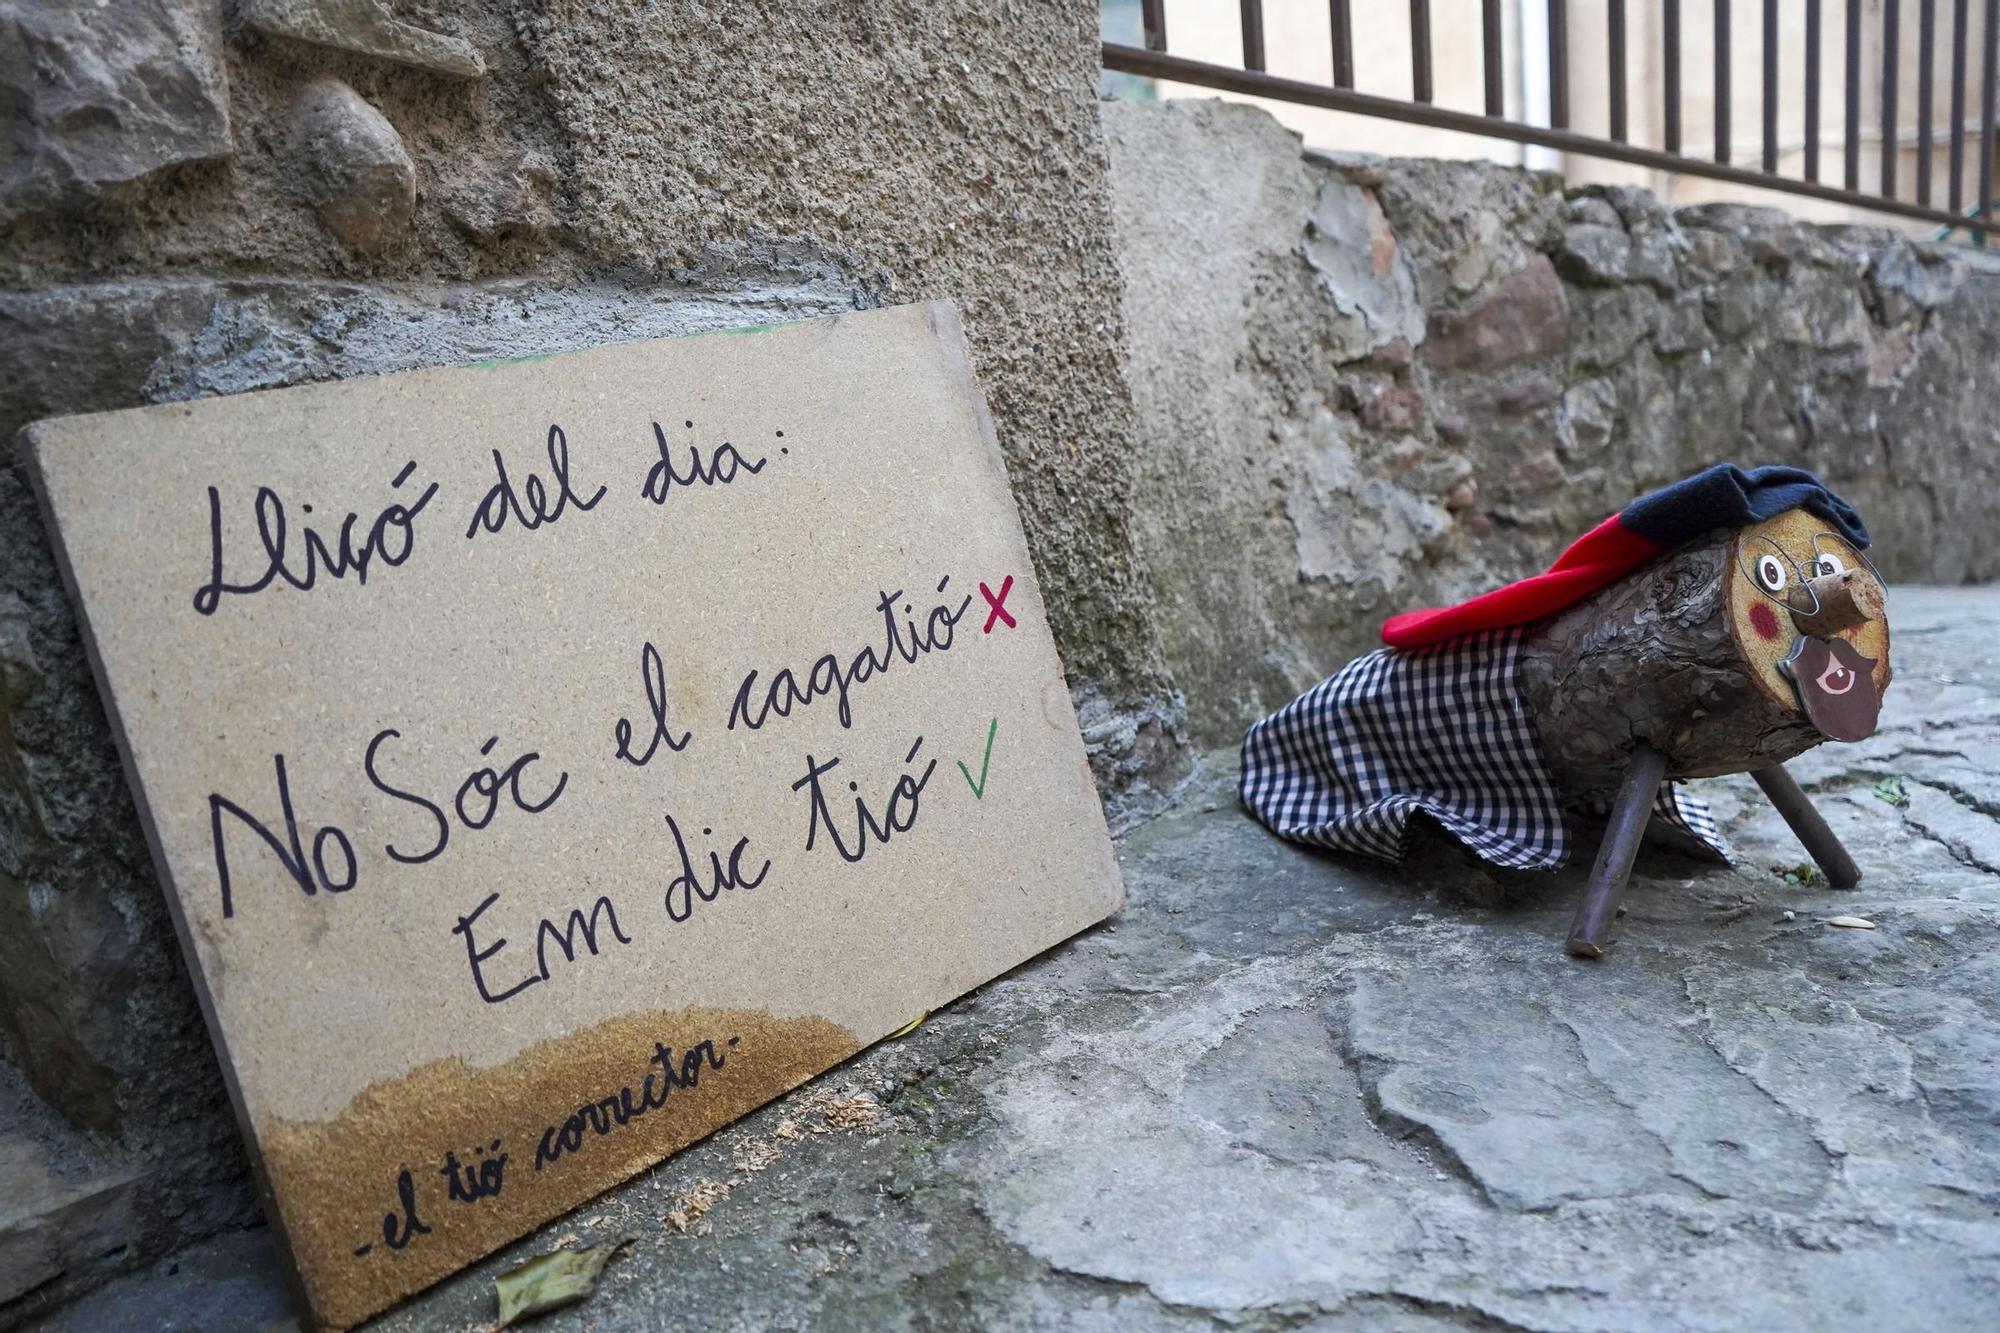 Lliçó del dia:
No Sóc el cagatió x
Em dic tió ✓
-el tió corrector-